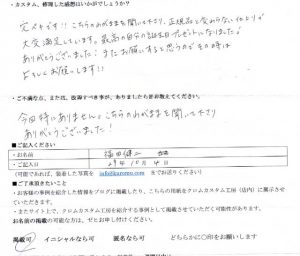 ・カスタム、修理した感想はいかがでしょうか？
完ペキです!! こちらのわがままを聞いて下さり、正規品と変わらない仕上りで
大変満足しています。最高の自分の誕生日プレゼントになりました♪
ありがとうございました! またお願いすると思うのでその時は
よろしくお願いします!!
・ご不満な点、または、改善すべき事が、ありましたら是非教えてください。
今回特にありません。こちらのわがままを聞いて下さり
ありがとうございました!
■ご記入ください
・お名前
・ご記入日 29年 10月 4日
(可能であれば、装着した写真を info@kuromu.com までお送りください)
■ご了承頂きたいこと
・お客様の事例を紹介した情報をブログに掲載したり、こちらの用紙をクロムカスタム工房（店内）に展示させ
ていただきます。
・またサイト上で、クロムカスタム工房を紹介する事例として掲載させていただく可能性があります。
お名前の掲載の可能な方は、ゼヒお申し付けください。
掲載可 イニシャルなら可 匿名なら可 どちらかに〇印をお願いします